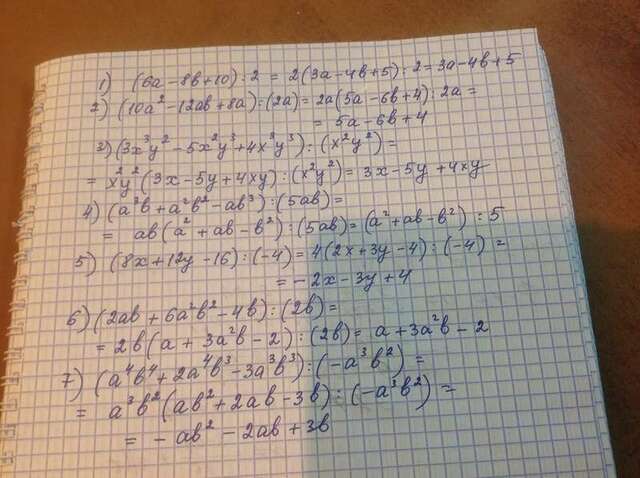 1) (6a - 8b + 10) : 2 = 2(3a - 4b + 5) : 2 = 3a - 4b + 5
2) (10a² - 12ab + 8a) : (2a) = 2a(5a - 6b + 4) : 2a =
= 5a - 6b + 4
3) (3x³y² - 5x²y³ + 4x³y³) : (x²y²) =
= x²y²(3x - 5y + 4xy) : (x²y²) = 3x - 5y + 4xy
4) (a³b + a²b² - ab³) : (5ab) =
= ab(a² + ab - b²) : (5ab) = (a² + ab - b²) : 5
5) (8x + 12y - 16) : (-4) = 4(2x + 3y - 4) : (-4) =
= - 2x - 3y + 4
6) (2ab + 6a²b² - 4b) : (2b) =
= 2b(a + 3a²b - 2) : (2b) = a + 3a²b - 2
7) (a⁴b⁴ + 2a⁴b³ - 3a³b³) : (-a³b²) =
= a³b²(ab² + 2ab - 3b) : (-a³b²) =
= - ab² - 2ab + 3b